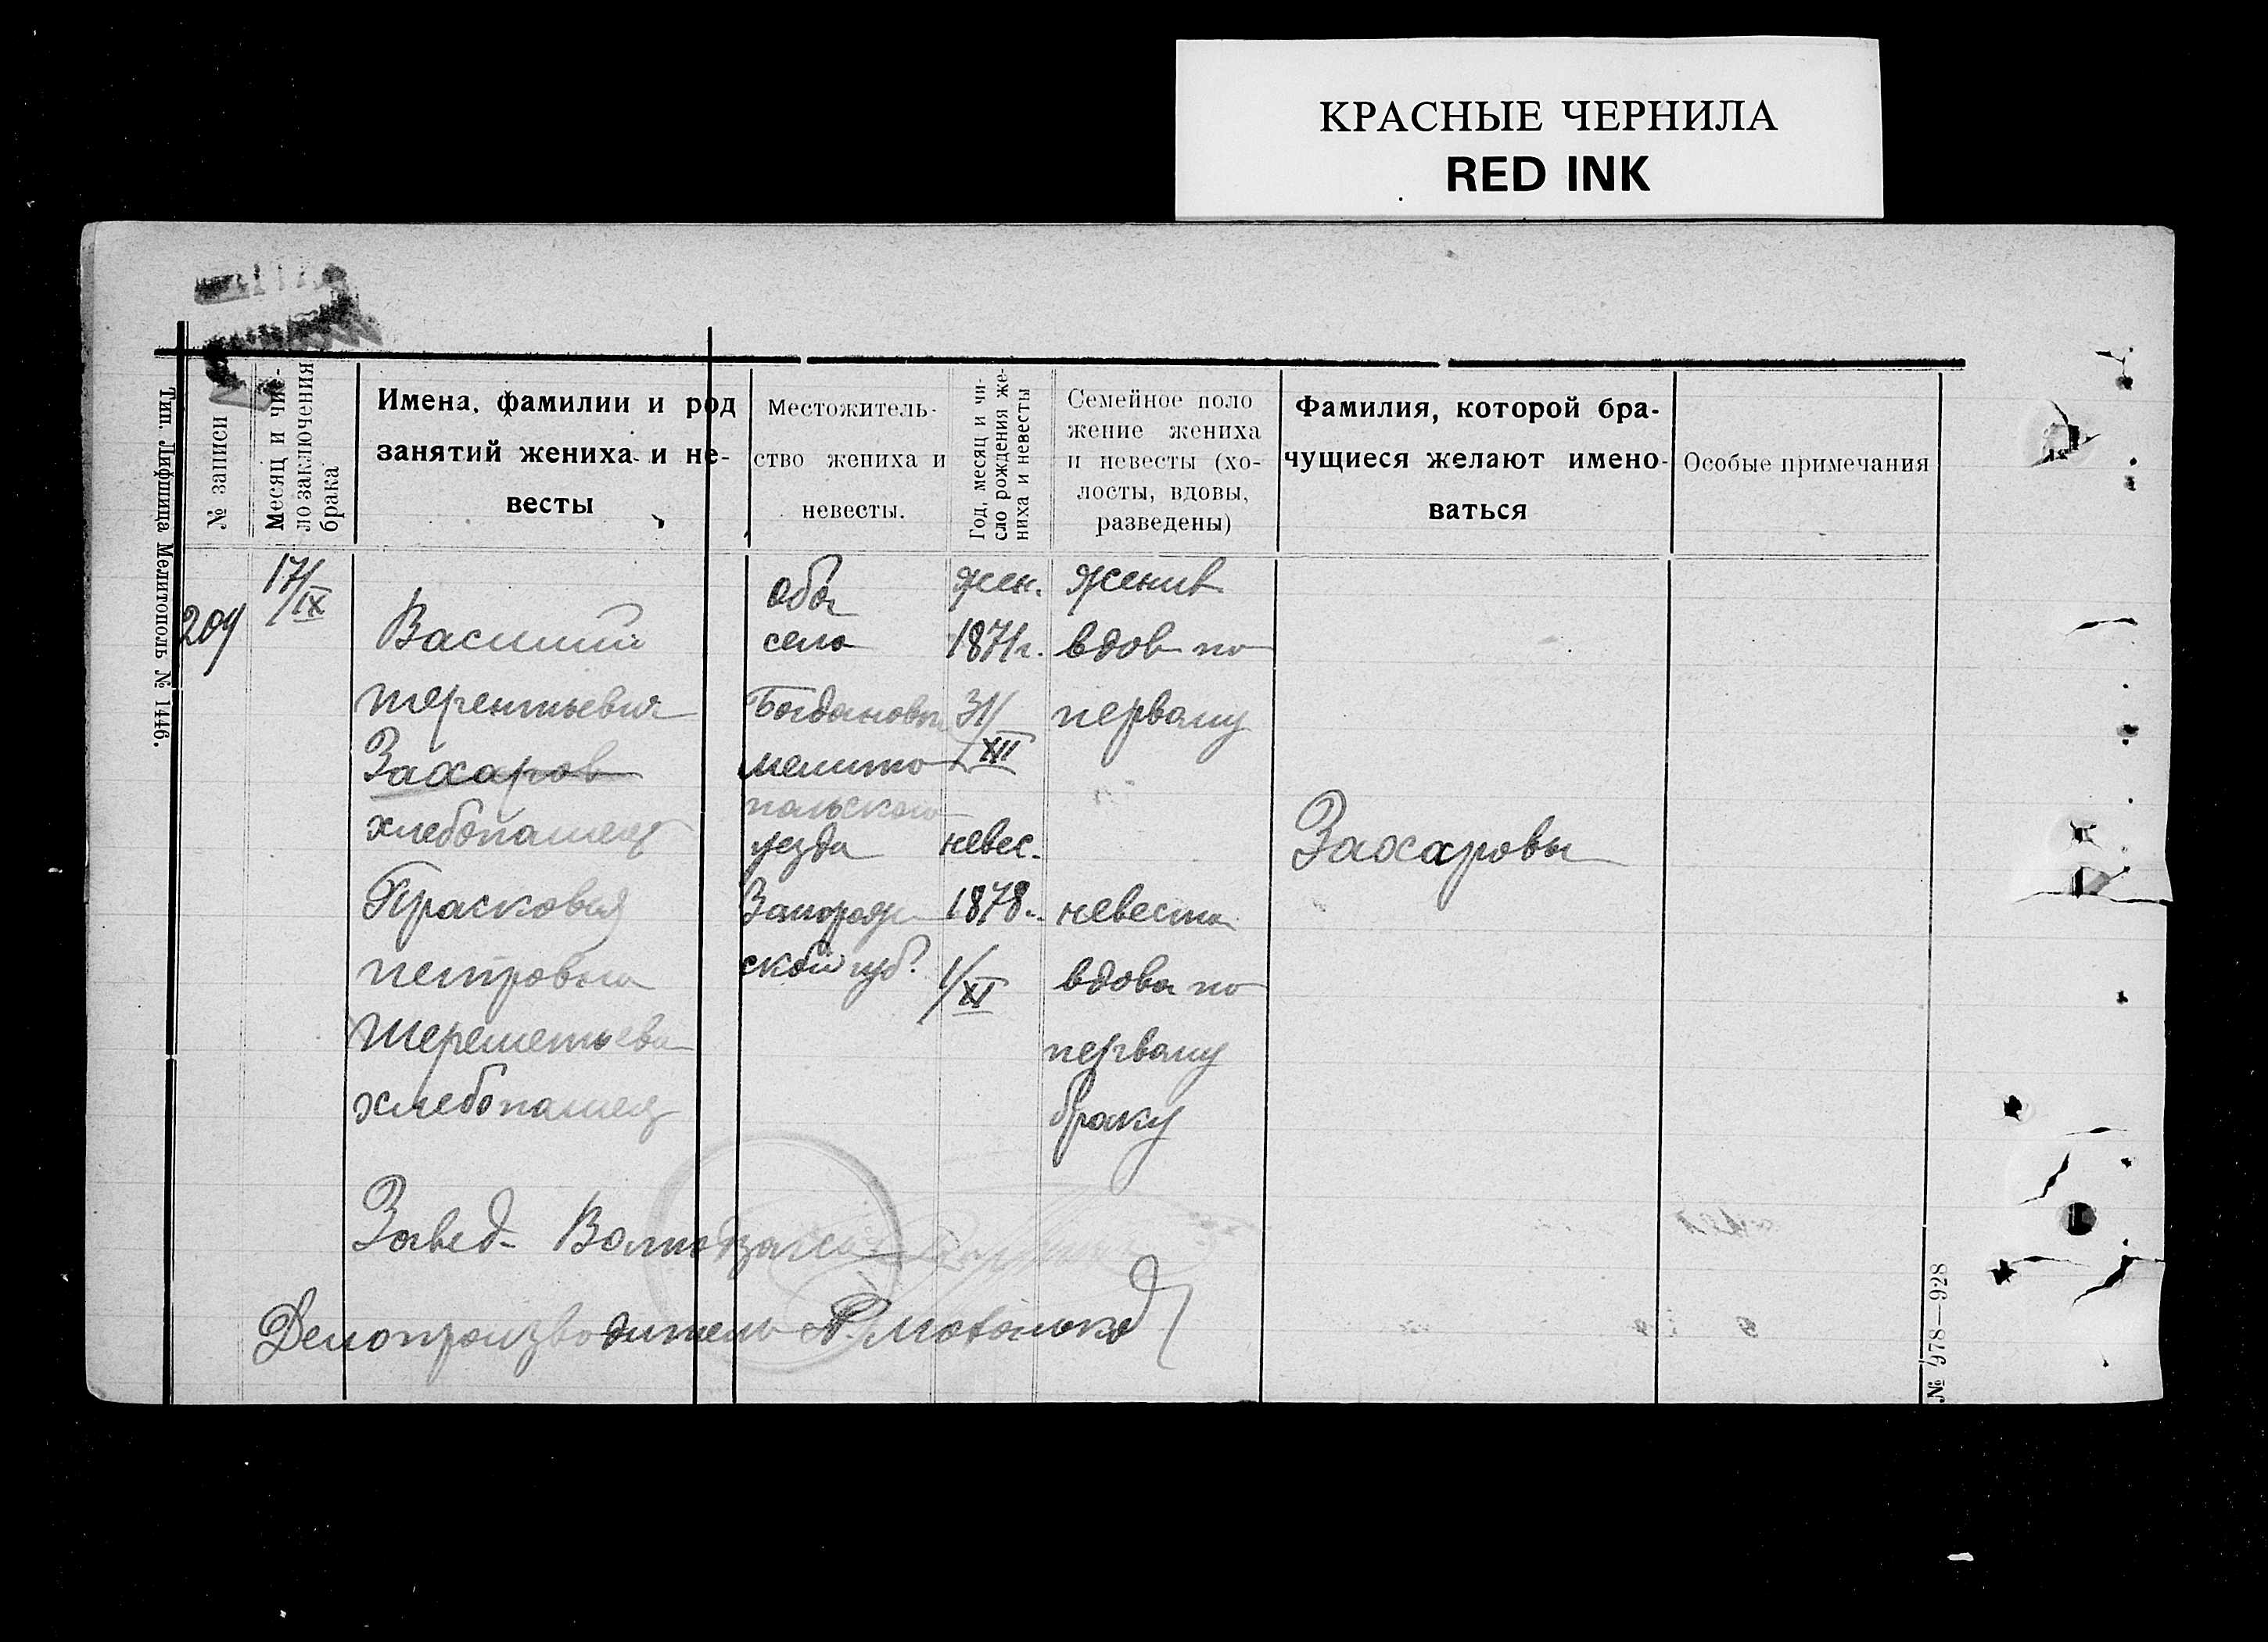 КРАСНЫЕ ЧЕРНИЛА
RED INK
Тип. Лифшица Мелитополь № 1446.
№ записи
Месяц и чис-
ло заключения
брака
Имена, фамилии и род
занятий жениха и не-
весты
Местожитель-
ство жениха и
невесты.
Год, месяц и чи-
сло рождения же-
ниха и невесты
Семейное поло
жение жениха
и невесты (хо-
лосты, вдовы,
разведены)
Фамилия, которой бра-
чущиеся желают имено-
ваться
Особые примечания
209
17/IX
Василий
Терентьевич
Захаров
хлебопашец
Прасковья
Петровна
Шереметьева
хлебопашец
оба
села
Богдановки
мелито
польского
уезда
Запорож
ской губ.
жен.
1871г.
31/
XII
невес.
1878г.
1/XI
жених
вдов по
первому
невеста
вдова по
первому
браку
Захаровы
Завед. Волподзагса
Делопроизводитель
№ 978—928